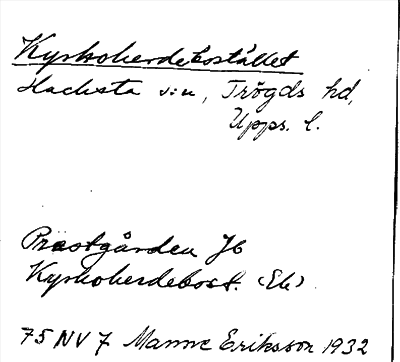 Kyrkoherdebostället
Hacksta s:n, Trögds hd,
Upps. l.
Prästgården Jb
Kyrkoherdebost. (Ek)
75 NV 7 Manne Eriksson 1932